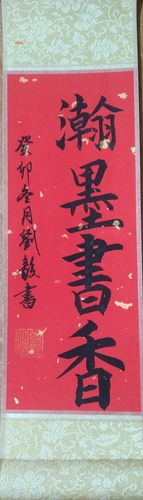 瀚墨書香
癸卯冬月劉毅書